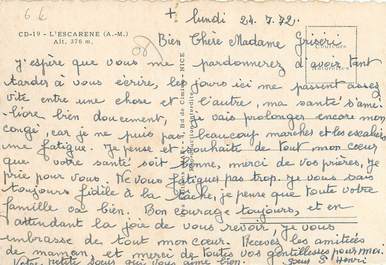 6 k
+ lundi 24.7.72.
CD-19 - L'ESCARENE (A.-M.)
Alt. 376 m.
Bien Chère Madame Griseri
j'espère que vous me pardonnerez d'avoir tant
tarder à vous écrire, les jours ici me passent assez
vite entre une chose et l'autre, ma santé s'amé-
liore bien doucement, je vais prolonger encore mon
congé, car je ne puis pas beaucoup marcher et les escaliers
me fatigue. Je pense et souhaite de tout mon cœur
que votre santé soit bonne, merci de vos prières, je
prie pour vous. Ne vous fatiguez pas trop. Je vous sais
toujours fidèle à la tâche, je pense que toute votre
famille va bien. Bon courage toujours, et en
attendant la joie de vous revoir, je vous
embrasse de tout mon cœur. Recevez les amitiées
de maman, et merci de toutes vos gentillesses pour moi.
Votre petite sœur qui vous aime bien. Sœur St Henri
NICE